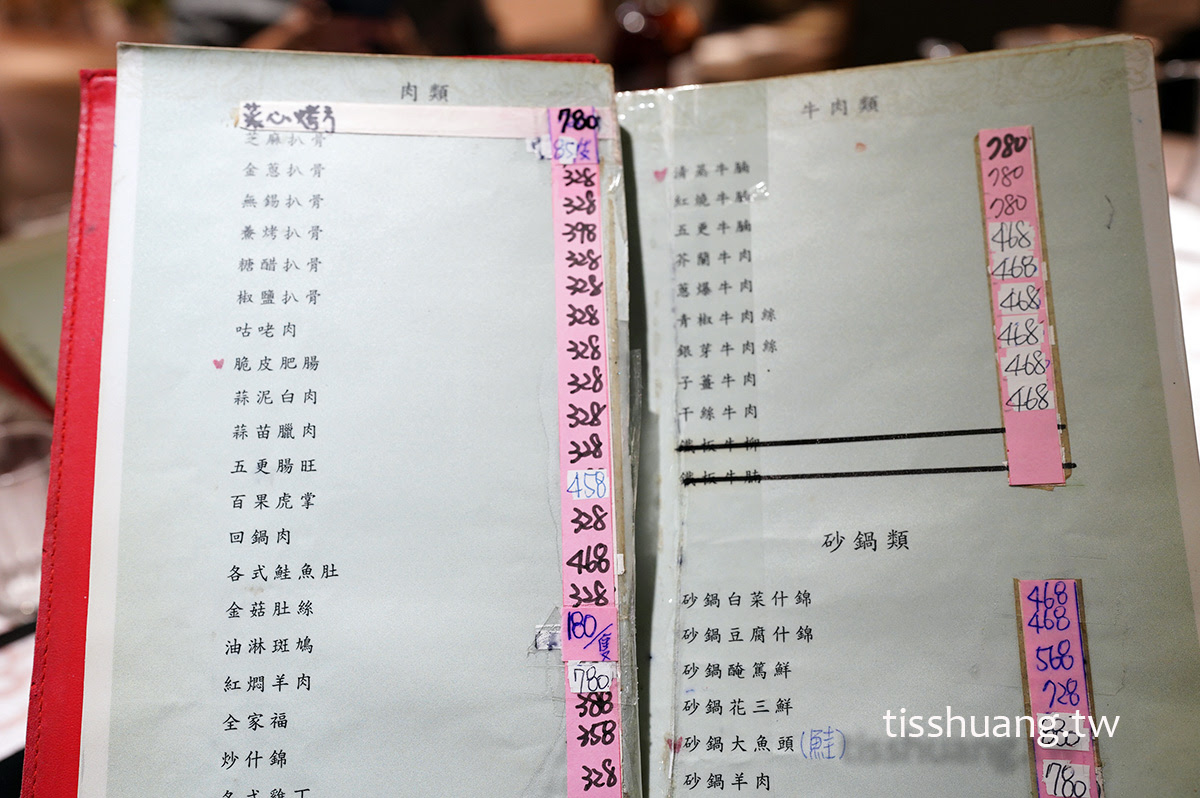 肉類
菜心烤方 780
芝麻扒骨 85/支
金蔥扒骨 328
無錫扒骨 328
烤扒骨 398
糖醋扒骨 328
椒鹽扒骨 328
咕咾肉 328
脆皮肥腸 328
蒜泥白肉 328
蒜苗臘肉 328
五更腸旺 328
百果虎掌 458
回鍋肉 328
各式鮭魚肚 468
金菇肚絲 328
油淋斑鳩 180/隻
紅燜羊肉 780
全家福 388
炒什錦 358
各式雞丁 328
牛肉類
清蒸牛腩 780
紅燒牛腩 780
五更牛腩 780
芥蘭牛肉 468
蔥爆牛肉 468
青椒牛肉絲 468
銀芽牛肉絲 468
子薑牛肉 468
干絲牛肉 468
鐵板牛柳
鐵板牛腩
砂鍋類
砂鍋白菜什錦 468
砂鍋豆腐什錦 468
砂鍋醃篤鮮 568
砂鍋花三鮮 728
砂鍋大魚頭(鮭)
砂鍋羊肉 780
tisshuang.tw